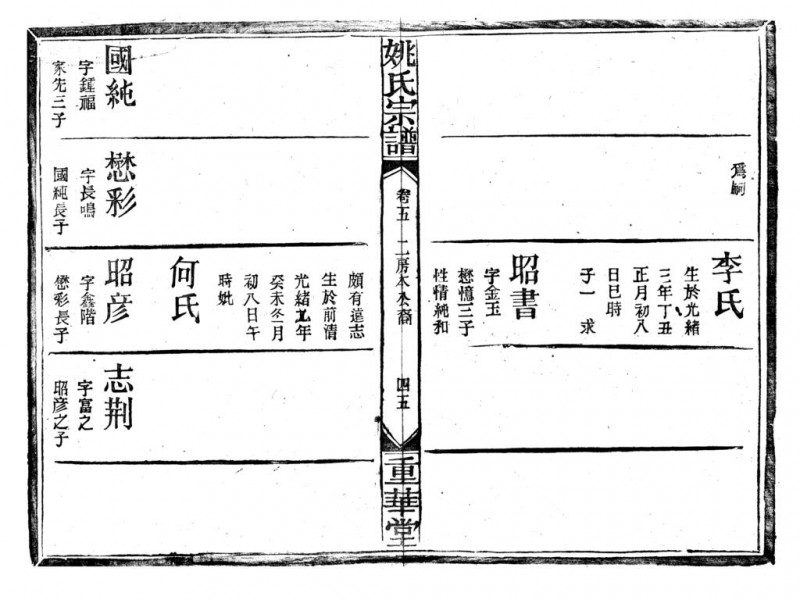 爲嗣
李氏
生於光緒
三年丁丑
正月初八
日巳時
子一 求
昭書
字金玉
懋憶三子
性情純和
姚氏宗譜
卷五 二房本癸裔
四五
重華堂
頗有遠志
生於前清
光緒九年
癸未冬月
初八日午
時妣
何氏
國純
字鍾福
家先三子
懋彩
字長鳴
國純長子
昭彦
字鑫階
懋彩長子
志荆
字富之
昭彦之子